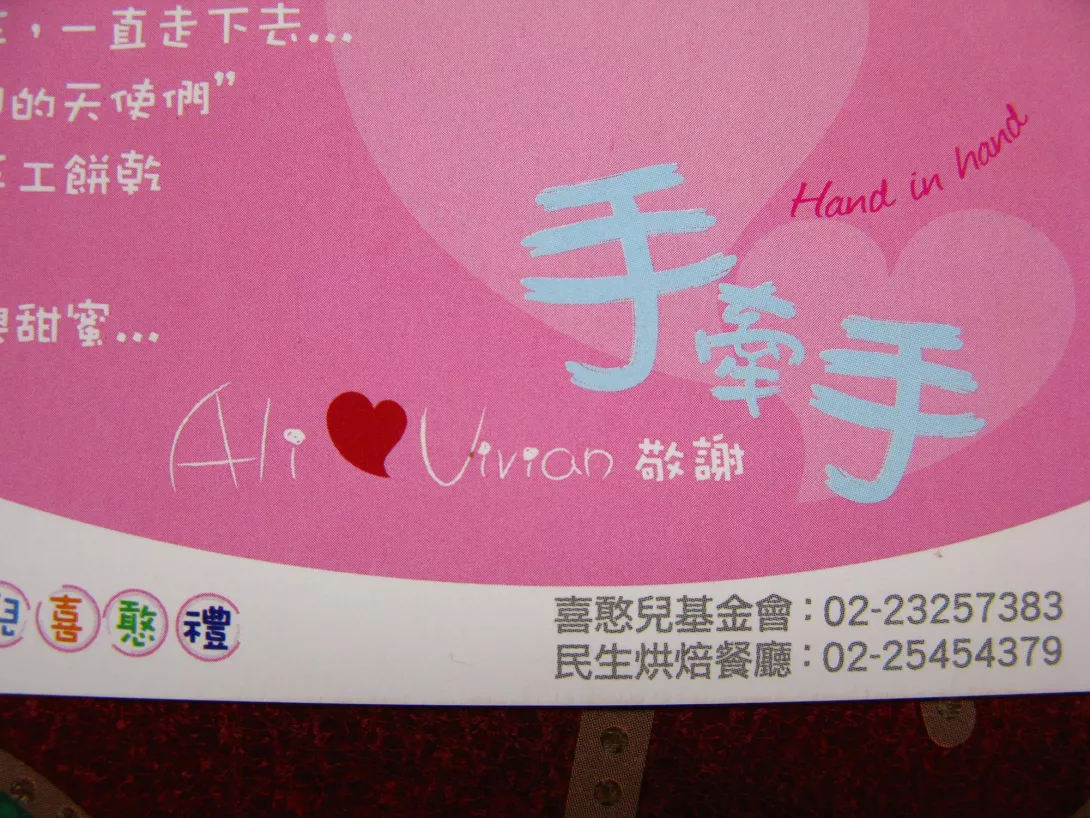 ，一直走下去...
的天使們”
工餅乾
甜蜜...
Hand in hand
手牽手
Ali Vivian 敬謝
兒喜憨禮
喜憨兒基金會：02-23257383
民生烘焙餐廳：02-25454379